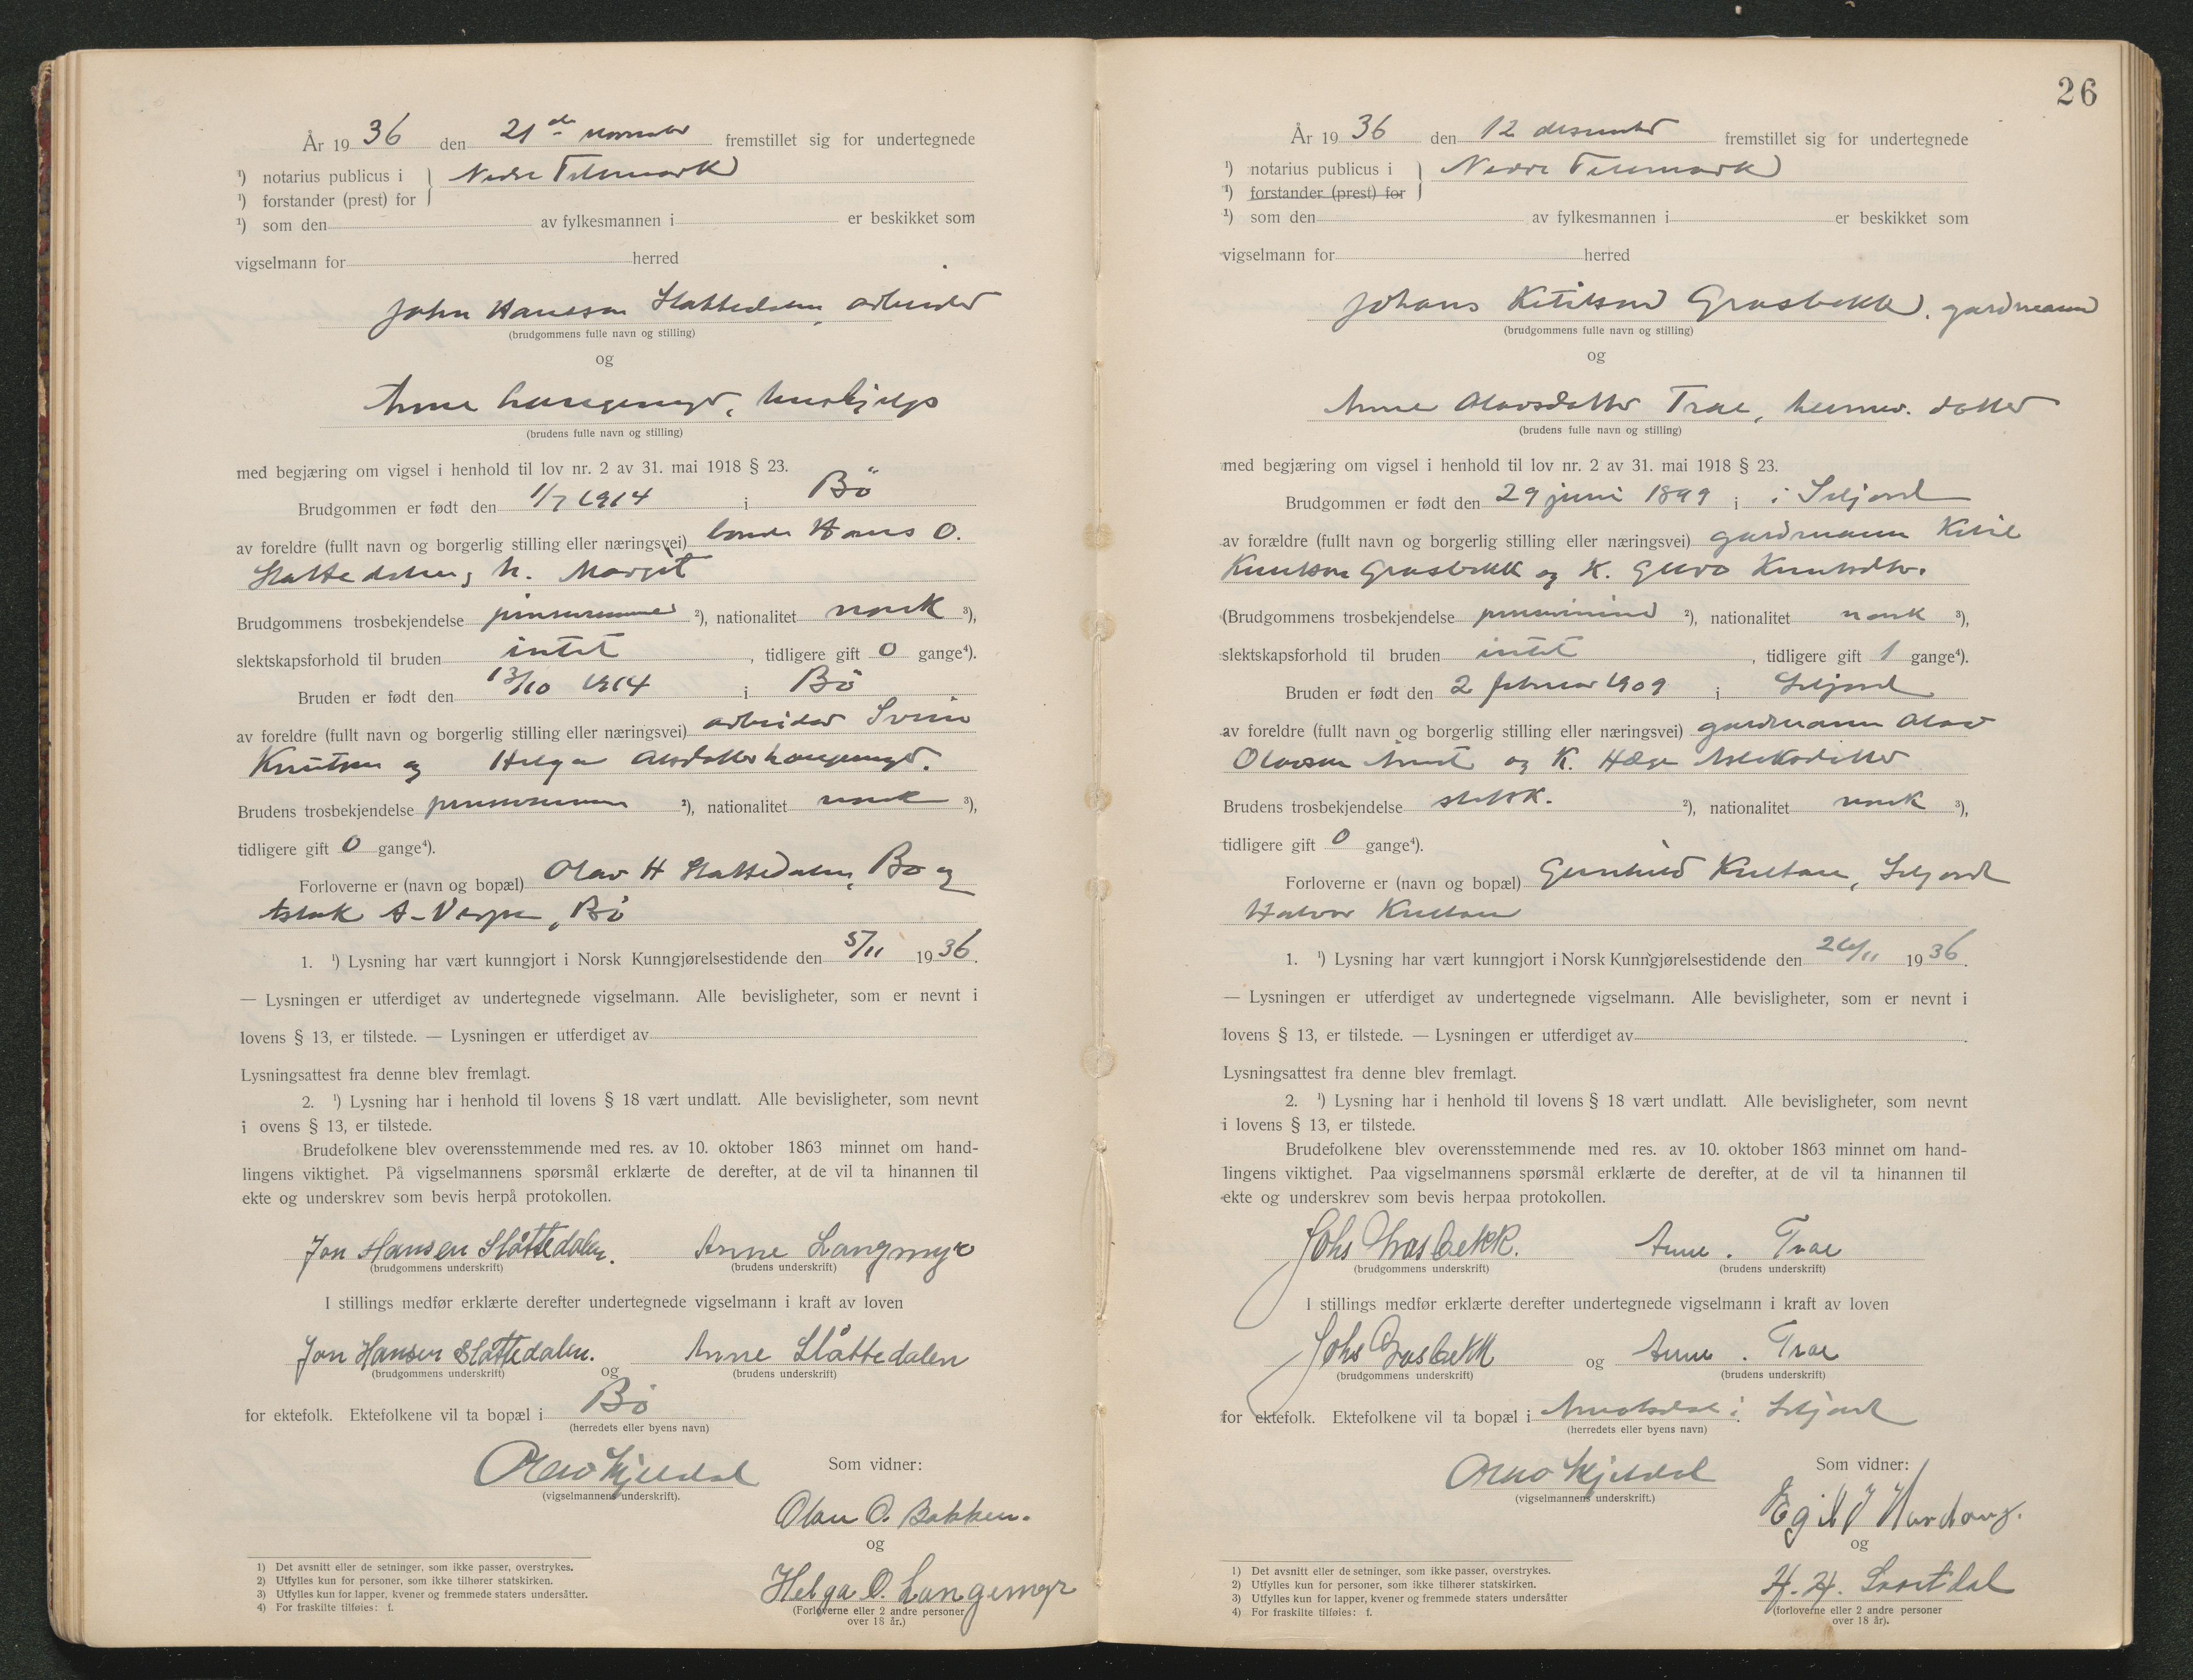 År 19 36 den 21de november fremstillet sig for undertegnede
¹) notarius publicus i } Nedre Telemark
¹) forstander (prest) for
¹) som den av fylkesmannen i er beskikket som
vigselmann for herred
John Hansson Slattedalen, arbeider
(brudgommens fulle navn og stilling)
og
Anne Langemyr, hushjelp
(brudens fulle navn og stilling)
med begjæring om vigsel i henhold til lov nr. 2 av 31. mai 1918 § 23.
Brudgommen er født den 1/7 1914 i Bö
av foreldre (fullt navn og borgerlig stilling eller næringsvei) bonde Hans O.
Slattedalen, h. Margit
Brudgommens trosbekjendelse ²), nationalitet norsk ³),
slektskapsforhold til bruden intet, tidligere gift 0 gange⁴).
Bruden er født den 13/10 1914 i Bö
av foreldre (fullt navn og borgerlig stilling eller næringsvei) arbeider Svein
Knutsen og Helga Langemyr.
Brudens trosbekjendelse ²), nationalitet norsk ³),
tidligere gift 0 gange⁴).
Forloverne er (navn og bopæl) Olav H Slattedalen, Bø og
Aslak A. Verpe, Bö
1. ¹) Lysning har vært kunngjort i Norsk Kunngjørelsestidende den 5/11 1936.
— Lysningen er utferdiget av undertegnede vigselmann. Alle bevisligheter, som er nevnt i
lovens § 13, er tilstede. — Lysningen er utferdiget av
Lysningsattest fra denne blev fremlagt.
2. ¹) Lysning har i henhold til lovens § 18 vært undlatt. Alle bevisligheter, som nevnt
i ovens § 13, er tilstede.
Brudefolkene blev overensstemmende med res. av 10. oktober 1863 minnet om hand-
lingens viktighet. På vigselmannens spørsmål erklærte de derefter, at de vil ta hinannen til
ekte og underskrev som bevis herpå protokollen.
Jon Hansen Slåttedalen. Anne Langmyr
(brudgommens underskrift) (brudens underskrift)
I stillings medfør erklærte derefter undertegnede vigselmann i kraft av loven
Jon Hansen Slåttedalen. og Anne Slåttedalen
(brudgommens underskrift) (brudens underskrift)
for ektefolk. Ektefolkene vil ta bopæl i Bö
(herredets eller byens navn)
Olav Kjeldal Som vidner:
(vigselmannens underskrift).
Olav O. Bakken.
og
Helga O. Langemyr
(Forloverne eller 2 andre personer
over 18 år.)
1) Det avsnitt eller de setninger, som ikke passer, overstrykes.
2) Utfylles kun for personer, som ikke tilhører statskirken.
3) Utfylles kun for lapper, kvener og fremmede staters undersåtter.
4) For fraskilte tilføies: f.
26
År 19 36 den 12 desember fremstillet sig for undertegnede
¹) notarius publicus i } Nedre Telemark
¹) forstander (prest) for
¹) som den av fylkesmannen i er beskikket som
vigselmann for herred
Johans Ketilsen Grasbekk, gardmann
(brudgommens fulle navn og stilling)
og
Anne Olavsdatter Trae, heimev. datter
(brudens fulle navn og stilling)
med begjæring om vigsel i henhold til lov nr. 2 av 31. mai 1918 § 23.
Brudgommen er født den 29 juni 1899 i i Seljord
av forældre (fullt navn og borgerlig stilling eller næringsvei) gardmann Ketil
Knutson Grasbekk og K. Guro Knutsdtr.
(Brudgommens trosbekjendelse ²), nationalitet norsk ³),
slektskapsforhold til bruden intet, tidligere gift 1 gange⁴).
Bruden er født den 2 februar 1909 i Seljord
av foreldre (fullt navn og borgerlig stilling eller næringsvei) gardmann Olav
Olavsen og K. Hæge Aslaksdatter
Brudens trosbekjendelse statsk. ²), nationalitet norsk ³),
tidligere gift 0 gange⁴).
Forloverne er (navn og bopæl) Gunhild, Seljord
Halvor
1. ¹) Lysning har vært kunngjort i Norsk Kunngjørelsestidende den 26/11 1936.
— Lysningen er utferdiget av undertegnede vigselmann. Alle bevisligheter, som er nevnt i
lovens § 13, er tilstede. — Lysningen er utferdiget av
Lysningsattest fra denne blev fremlagt.
2. ¹) Lysning har i henhold til lovens § 18 vært undlatt. Alle bevisligheter, som nevnt
i lovens § 13, er tilstede.
Brudefolkene blev overensstemmende med res. av 10. oktober 1863 minnet om hand-
lingens viktighet. Paa vigselmannens spørsmål erklærte de derefter, at de vil ta hinannen til
ekte og underskrev som bevis herpaa protokollen.
Johs Grasbekk. Anne. Trae
(brudgommens underskrift) (brudens underskrift)
I stillings medfør erklærte derefter undertegnede vigselmann i kraft av loven
Johs Grasbekk og Anne. Trae
(brudgommens underskrift) (brudens underskrift)
for ektefolk. Ektefolkene vil ta bopæl i i Seljord
(herredets eller byens navn)
Olav Kjeldal Som vidner:
(vigselmannens underskrift.)
Egil
og
H. H.
(forloverne eller 2 andre personer
over 18 år).
1) Det avsnitt eller de setninger, som ikke passer, overstrykes.
2) Utfylles kun for personer, som ikke tilhører statskirken.
3) Utfylles kun for lapper, kvener og fremmede staters undersåtter
4) For fraskilte tilføies: f.